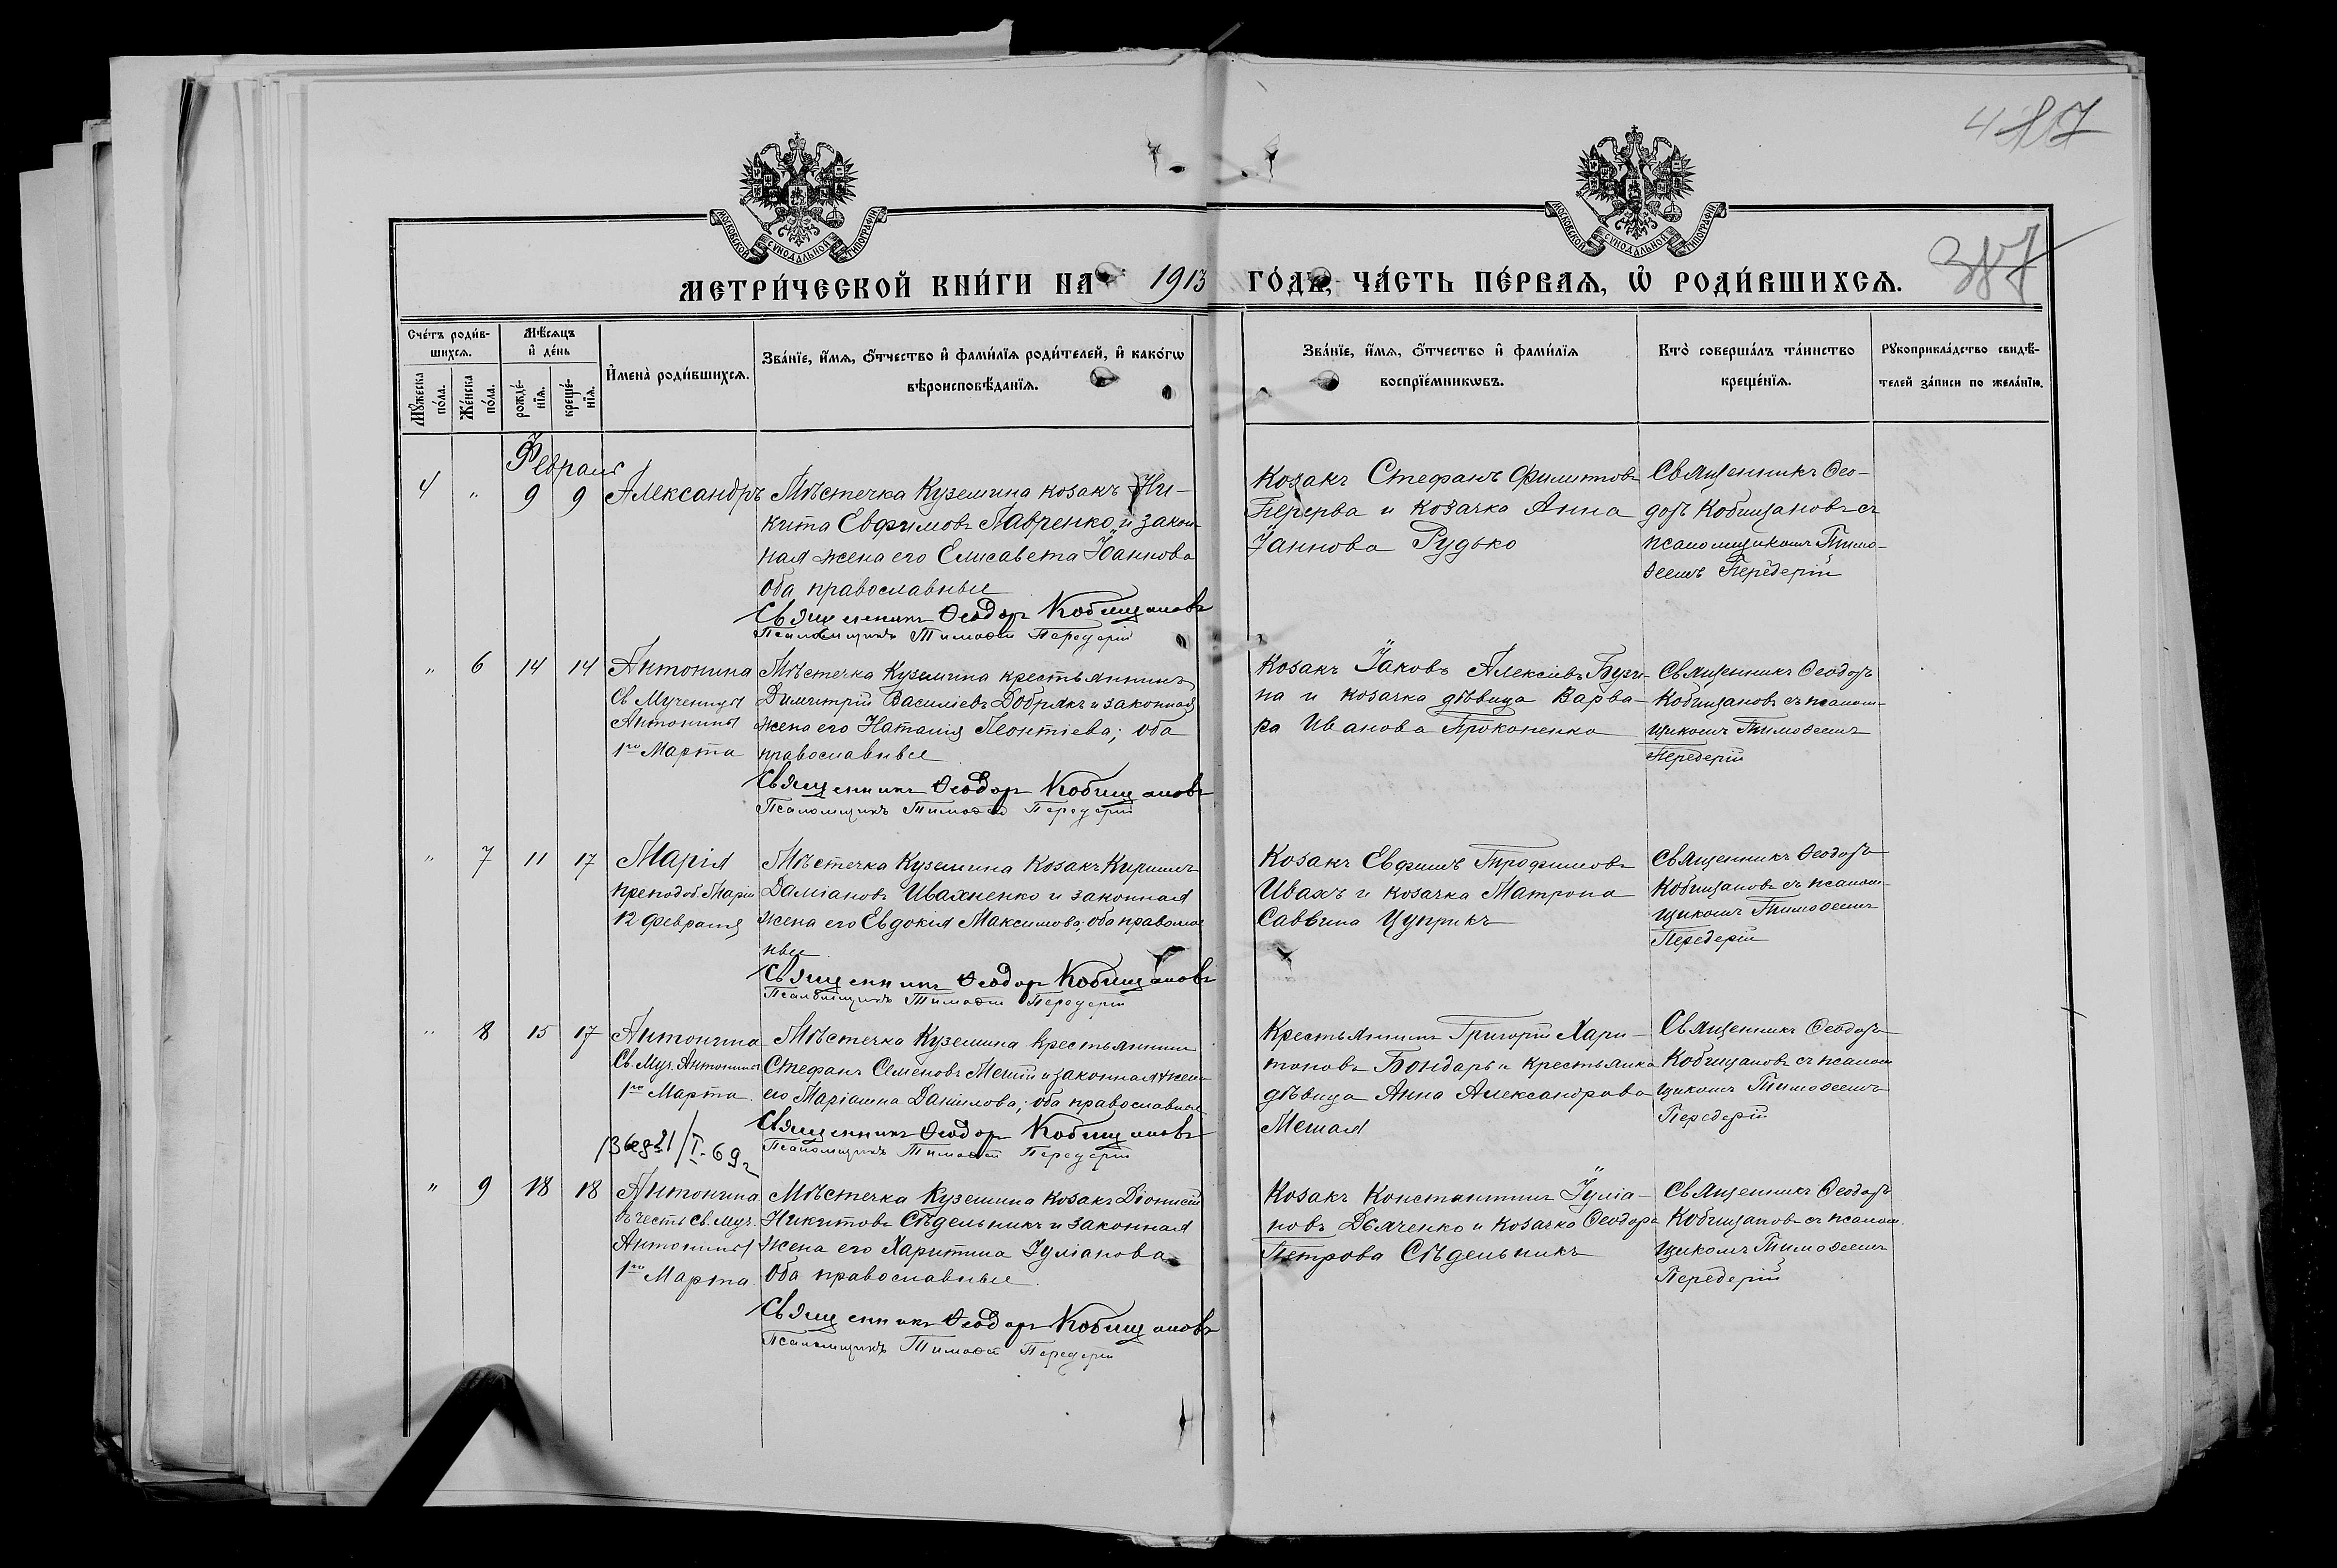 417
МОСКОВСКОЙ СУНОДАЛЬНОЙ ТИПОГРАФІИ
МОСКОВСКОЙ СУНОДАЛЬНОЙ ТИПОГРАФІИ
МЕТРИ́ЧЕСКОЙ КНИ́ГИ НА 1913 ГО́ДЪ, ЧА́СТЬ ПЕ́РВАЯ, Ѡ҆ РОДИ́ВШИХСЯ.
Сче́тъ роди́в-
шихся.
Мѣ́сяцъ
и҆ де́нь
Мꙋ́жеска по́ла.
Же́нска по́ла.
рожде́-
нїя.
креще́-
нїя.
И҆мена̀ роди́вшихся.
Зва́нїе, и҆́мя, ѻ҆́тчество и҆ фами́лїя роди́телей, и҆ како́гѡ
вѣроисповѣ́данїя.
Зва́нїе, и҆́мя, ѻ҆́тчество и҆ фами́лїя
воспрїе́мникѡвъ.
Кто̀ соверша́лъ та́инство
креще́нїя.
Рꙋкоприкла́дство свидѣ́-
телей за́писи по жела́нїю.
Февраль
4 „ 9 9 Александръ
Мѣстечка Куземина козакъ Ни-
кита Евфимовъ Лавренко и закон-
ная жена его Елисавета Іоаннова
оба православные
Священникъ Ѳеодоръ Кобищановъ
Псаломщикъ Тимоѳей Передерій
Козакъ Стефанъ Филиповъ
Перерва и козачка Анна
Іаннова Рудько
Священникъ Ѳео-
доръ Кобищановъ съ
псаломщикомъ Тимо-
ѳеемъ Передерій
„ 6 14 14 Антонина
Св Мученицы
Антонины
1го Марта
Мѣстечка Куземина крестьянинъ
Димитрій Василіевъ Добрякъ и законная
жена его Наталія Леонтіева; оба
православные
Священникъ Ѳеодоръ Кобищановъ
Псаломщикъ Тимоѳей Передерій
Козакъ Іаковъ Алексіевъ Бузи-
на и козачка дѣвица Варва-
ра Иванова Прокопенко
Священникъ Ѳеодоръ
Кобищановъ съ псалом-
щикомъ Тимоѳеемъ
Передерій
„ 7 11 17 Марія
преподоб. Маріи
12 Февраля
Мѣстечка Куземина Козакъ Кириллъ
Даміановъ Ивахненко и законная
жена его Евдокія Максимова; оба православ
ные
Священникъ Ѳеодоръ Кобищановъ
Псаломщикъ Тимоѳей Передерій
Козакъ Евфимъ Трофимовъ
Ивахъ и козачка Матрона
Саввина Цуприкъ
Священникъ Ѳеодоръ
Кобищановъ съ псалом-
щикомъ Тимоѳеемъ
Передерій
„ 8 15 17 Антонина
Св. Муч. Антонины
1го Марта
21/I-69г
Мѣстечка Куземина крестьянинъ
Стефанъ Семеновъ Мешій и законная жена
его Маріамна Даніилова; оба православные
Священникъ Ѳеодоръ Кобищановъ
Псаломщикъ Тимоѳей Передерій
Крестьянинъ Григорій Хари-
тоновъ Бондарь и крестьянка
дѣвица Анна Александрова
Мешая
Священникъ Ѳеодоръ
Кобищановъ съ псалом
щикомъ Тимоѳеемъ
Передерій
„ 9 18 18 Антонина
въ честь Св. Муч.
Антонины
1го Марта
Мѣстечка Куземина козакъ Діонисій
Никитовъ Сѣдельникъ и законная
жена его Харитина Іуліанова
оба православные.
Священникъ Ѳеодоръ Кобищановъ
Псаломщикъ Тимоѳей Передерій
Козакъ Константинъ Іуліа-
новъ Дьяченко и козачка Ѳеодора
Петрова Сѣдельникъ
Священникъ Ѳеодоръ
Кобищановъ съ псалом.
щикомъ Тимоѳеемъ
Передерій